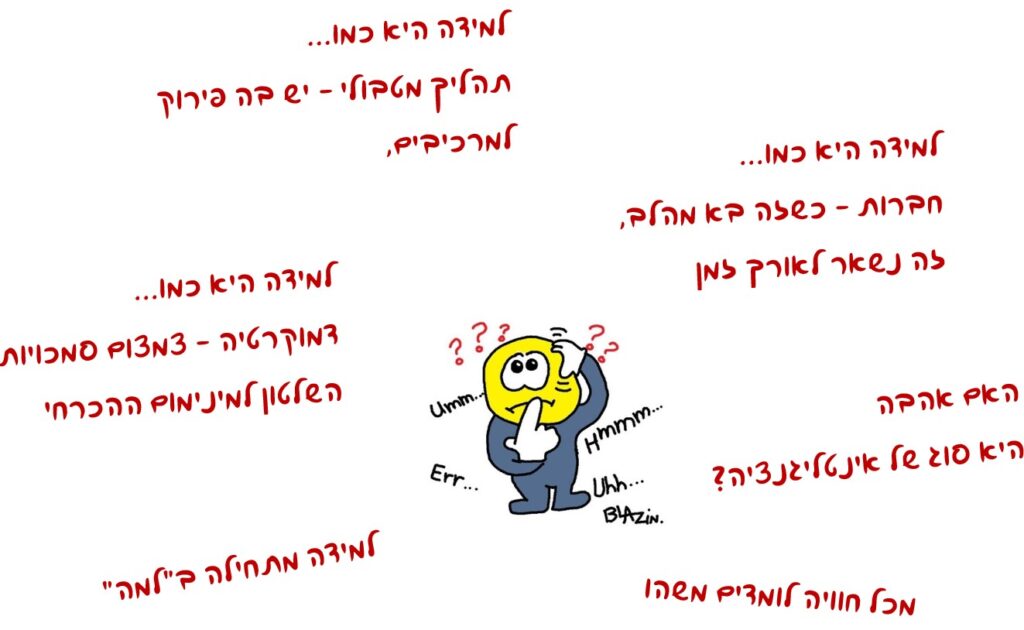 למידה היא כמו...
תהליך מטבולי - יש בה פירוק
למרכיבים,
למידה היא כמו...
חברות - כשזה בא מהלב,
זה נשאר לאורך זמן
למידה היא כמו...
דמוקרטיה - צמצום סמכויות
השלטון למינימום ההכרחי
? ? ? ? ?
Umm...
Hmmm...
Err...
Uhh...
BLAZIN.
האם אהבה
היא סוג של אינטליגנציה?
למידה מתחילה ב"למה"
מכל חוויה לומדים משהו